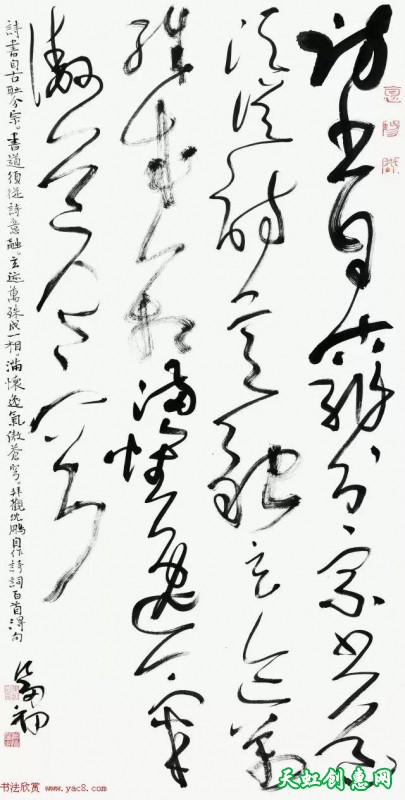 詩书自古耻分宗书道
须從詩意融玄迹萬
殊成一相滿懷逸氣
傲蒼穹
詩書自古耻分宗。書道須從詩意融。玄迹萬殊成一相。滿懷逸氣傲蒼穹。拜觀沈鵬自作詩詞百首得句
书法欣赏 www.yac8.com
天虹创意网